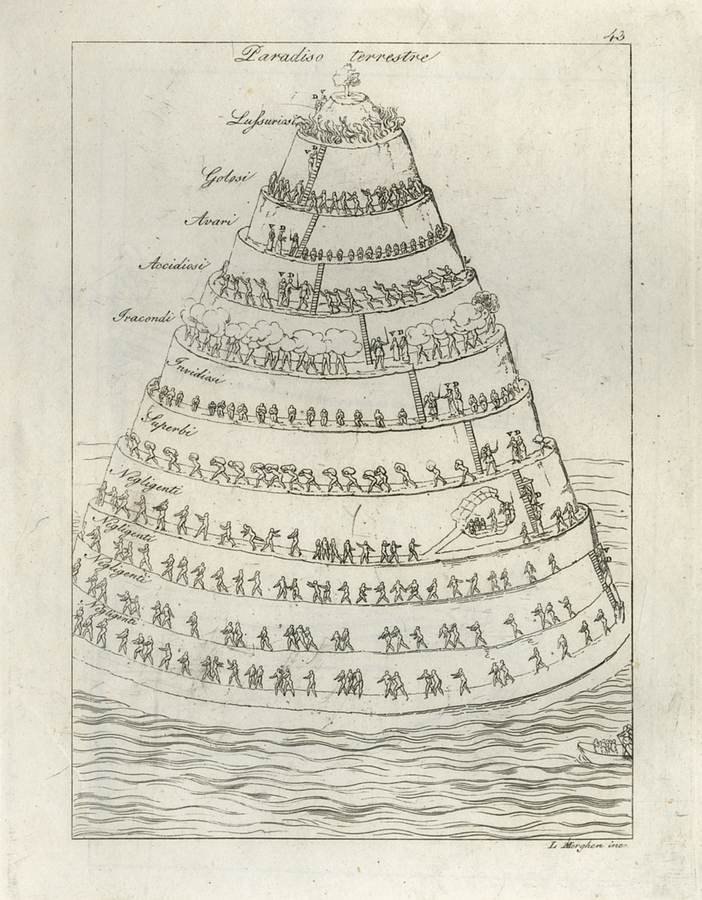 43
Paradiso terrestre
D V
Lussuriosi
V D
Golosi
Avari
V D
Accidiosi
V D
Iracondi
V D
Invidiosi
V D
Superbi
V D
Negligenti
Negligenti
Negligenti
Negligenti
L. Morghen inc.